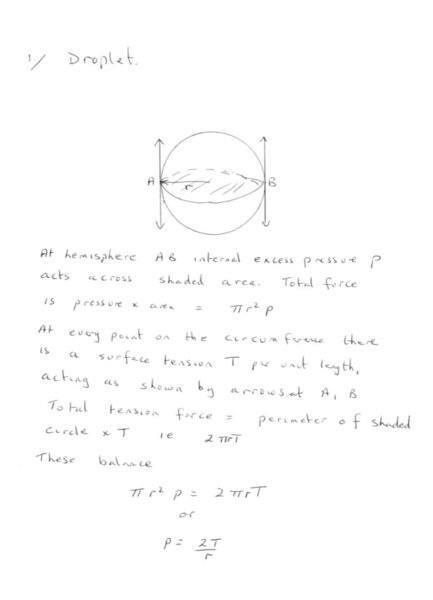 1/ Droplet.
A r B
At hemisphere AB internal excess pressure p
acts across shaded area. Total force
is pressure x area = πr² p
At every point on the circumference there
is a surface tension T per unit length,
acting as shown by arrows at A, B
Total tension force = perimeter of shaded
circle x T ie 2πrT
These balance
πr² p = 2πrT
or
p = 2T/r